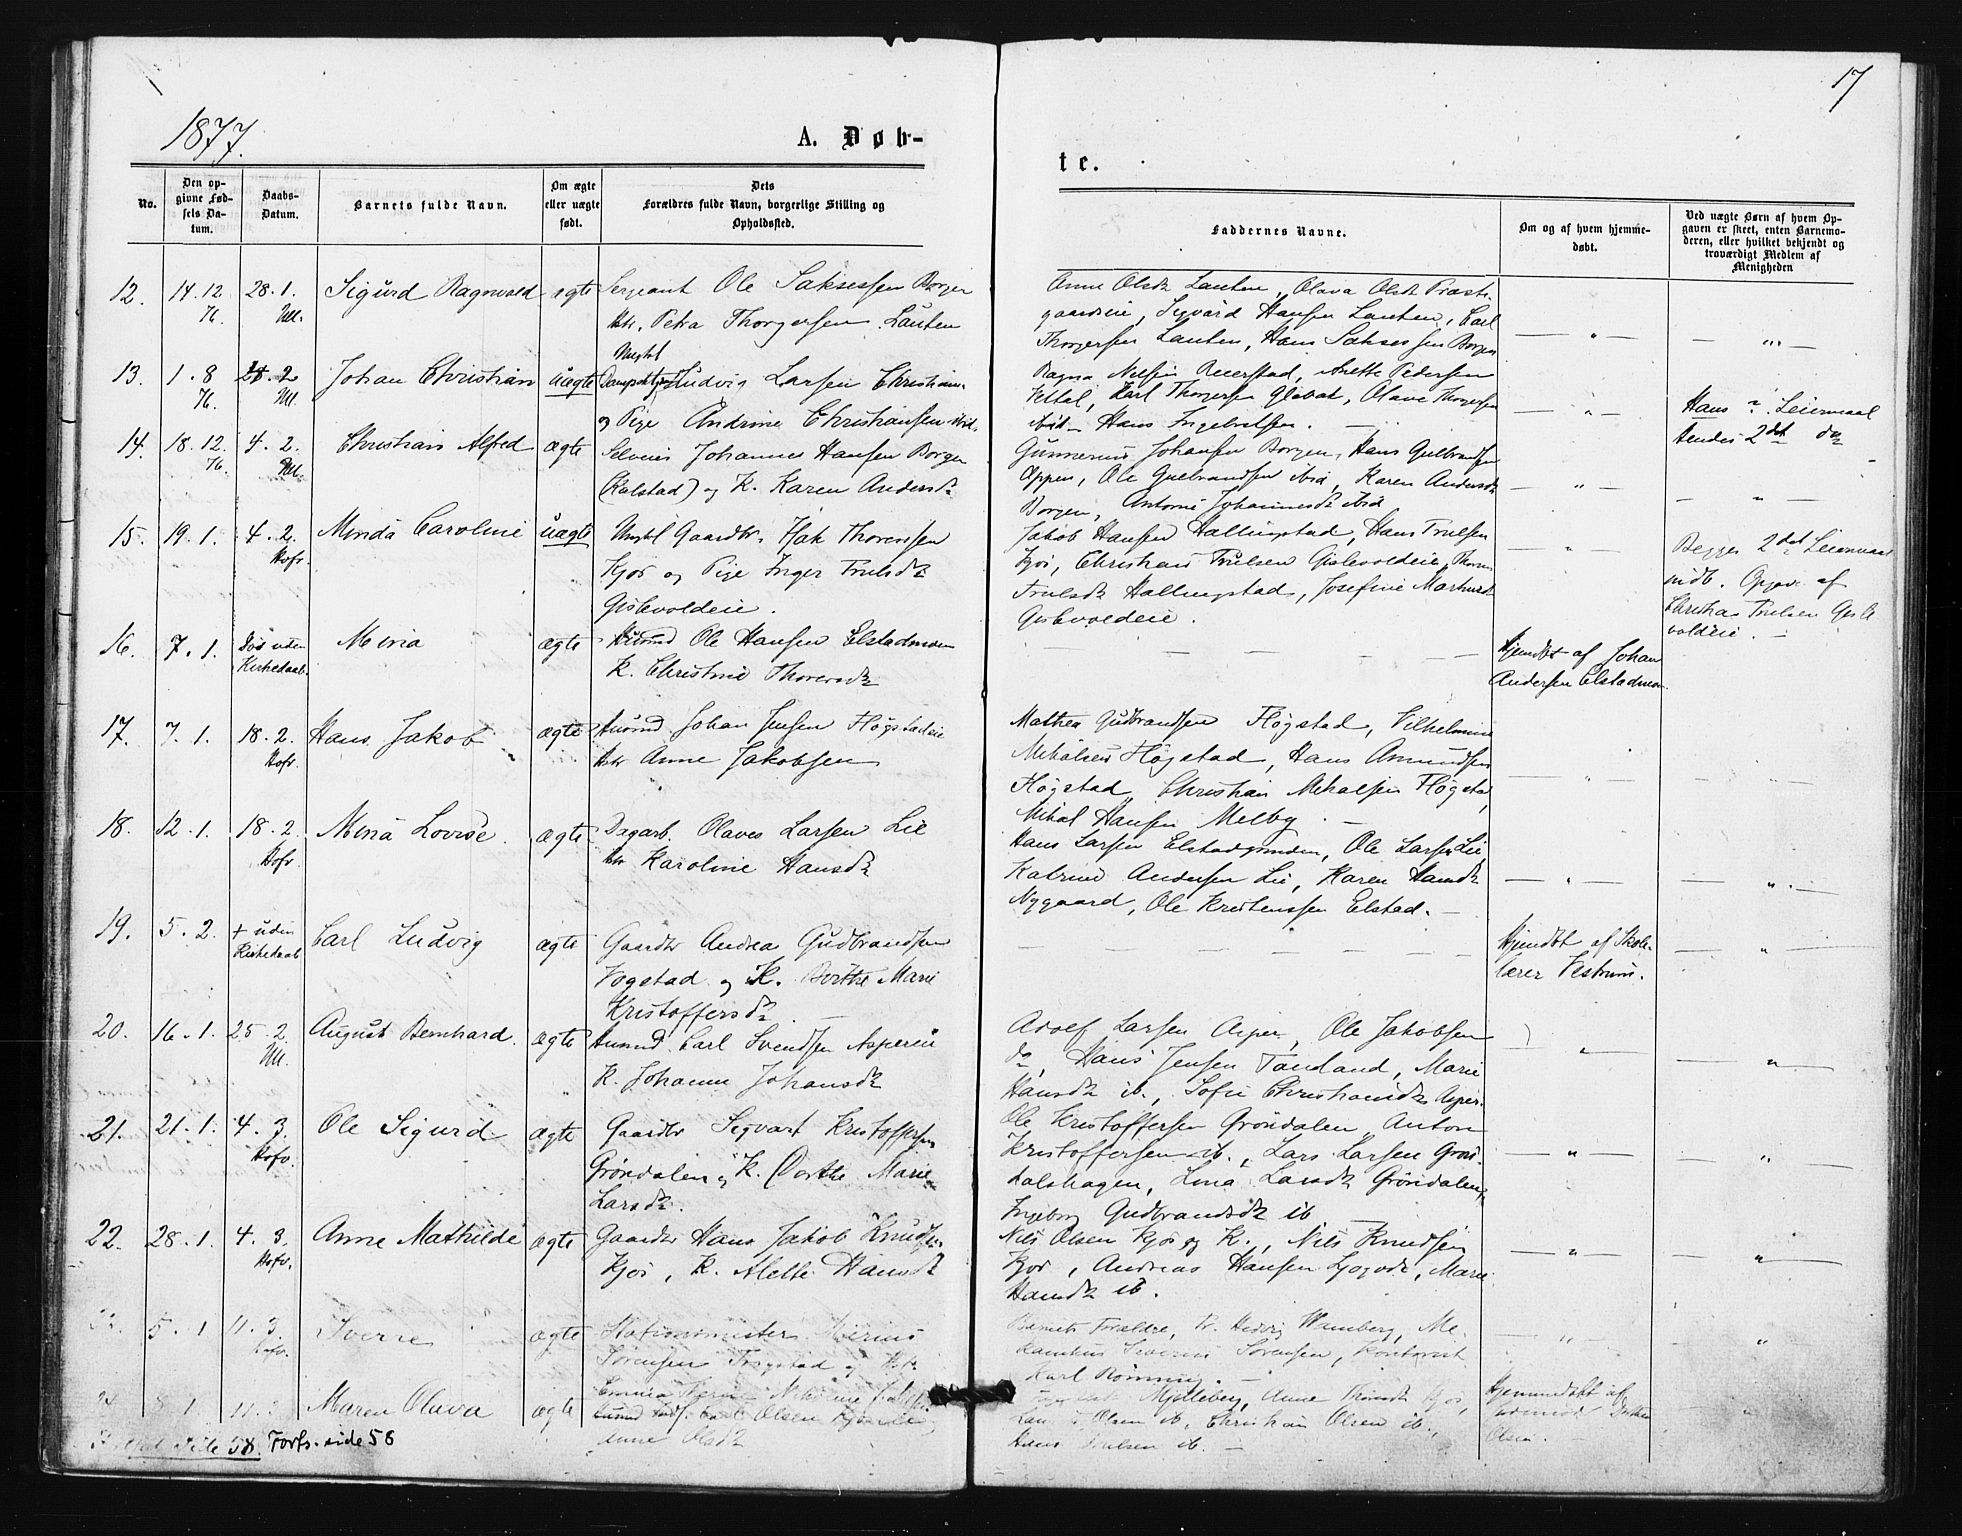 17
1877.
A. Døb-
te.
No.
Den op-
givne Fød-
sels Da-
tum.
Daabs-
Datum.
Barnets fulde Navn.
Om ægte
eller uægte
født.
Dets
Forældres fulde Navn, borgerlige Stilling og
Opholdssted.
Faddernes Navne.
Om og af hvem hjemme-
døbt.
Ved uægte Børn af hvem Op-
gaven er skeet, enten Barnemo-
deren, eller hvilket bekjendt og
troværdigt Medlem af
Menigheden
12. 14.12. 28.1. Sigurd Ragnvald ægte Sergeant Ole Saksessen Borgen
76. Ull. Petra Thorgersen Lauten
Anne Olsdr Lauten, Olava Olsdr Præste-
gaardseie, Sigvard Hansen Lauten, Carl
Thorgersen Lauten, Hans Saksessen Borgen
13. 1.8 28.2 Johan Christian uægte Ungkl Ludvig Larsen Christiania
76. Ull. og Pige Andrine Christiansen ibid.
Ragna Nelsen Anette Pedersen
Karl Thorgersen Olava Thorgersen
ibid Hans Ingebretsen.
Hans Leiermaal
2det
14. 18.12. 4.2. Christian Alfred ægte Selveier Johannes Hansen Borgen
76. Ull. (Kalstad) og K. Karen Andersdr
Gunnerius Johansen Borgen, Hans Gulbrandsen
Oppen, Ole Gulbrandsen ibid, Karen Andersdr
Borgen, Antone Johannesdr ibid
15. 19.1. 4.2. Minda Caroline uægte Ungkl Gaardbr. Isak Thoresen
Hofv. Kjos og Pige Inger Trulsdr
Gislevoldeie.
Jakob Hansen Hallingstad, Hans Trulsen
Kjos, Christian Trulsen Gislevoldeie, Thoren
Trulsdr Hallingstad, Josefine
Gislevoldeie.
Begges 2det Leiermaal
indb. Opgav. af
Christian Trulsen Gisle
voldeie.
16. 7.1. Død uden Maria ægte Husmd Ole Hansen Elstadmoen
Kirkedaab. K. Christine Thoresdr
Hjemdbt af Johan
Andersen Elstadmoen.
17. 7.1. 18.2. Hans Jakob ægte Husmd Johan Jensen Høgstadeie
Hofv. Anne Jakobsen
Mathea Gudbrandsen Høgstad, Vilhelmine
Mikalsen Høgstad, Hans Amundsen
Høgstad, Christian Mikalsen Høgstad,
Mikal Hansen Melby.
18. 12.1. 18.2. Mina Lovise ægte Dagarb. Olaves Larsen Lie
Hofv. Karoline Hansdr
Hans Larsen Elstadgrinden, Ole Larsen Lie
Katrine Andersen Lie, Karen Hansdr
Nygaard, Ole Kristenssen Elstad.
19. 5.2. + uden Carl Ludvig ægte Gaardbr Andrea Gudbrandsen
Kirkedaab Fogstad og K. Berthe Marie
Kristoffersdr
Hjemdbt af Skole-
lærer Vestrum.
20. 16.1. 25.2 August Bernhard. ægte Husmd Carl Svendsen Aspereie
Ull. K. Johanne Johansdr
Adolf Larsen Asper, Ole Jakobsen
do, Hans Jensen Tandand, Marie
Hansdr ib., Sofie Christiansdr Asper.
21. 21.1. 4.3. Ole Sigurd ægte Gaardbr Sigvart Kristoffersen
Hofv. Grøndalen og K. Dorthe Marie
Larsdr.
Ole Kristoffersen Grøndalen, Anton
Kristoffersen ib., Lars Larsen Grøn-
dalshagen, Lina Larsdr Grøndalen,
Ingeborg Gudbrandsdr ib
22. 28.1. 4.3. Anne Mathilde ægte Gaardbr Hans Jakob Knudsen
Hofv. Kjos, K. Alette Hansdr
Nils Olsen Kjos og K., Nils Knudsen
Kjos, Andreas Hansen Marie
Hansdr ib.
5.1 11.3. Sverre ægte Stationsmester
Hofv. Sørensen Fogstad og
Barnets Forældre, Fr. Hedvig Wamberg, Me-
kanikus Severin Sørensen, Kontorist
Karl Rønning.
8.1 11.3 Maren Olava ægte Olsen
Anne Olsdr
Mylleberg, Anne
Olsen ib., Christian Olsen ib.,
Hans Trulsen ib.
Hjemmedøbt af
Olsen.
58. Forts. side 58